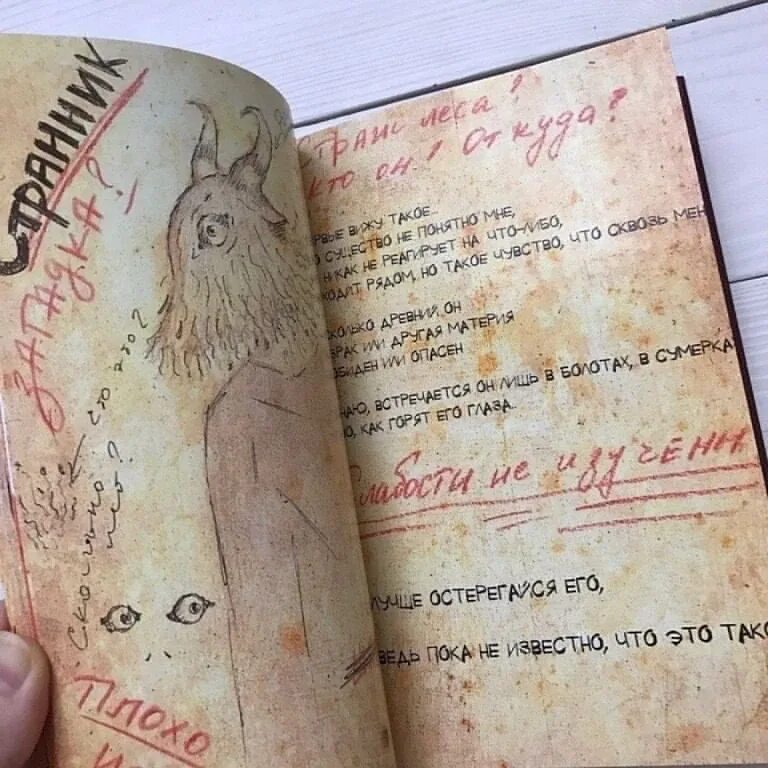 СТРАННИК
ЗАГАДКА?
что это?
Сколько
их?
Плохо
Страж леса?
кто он? Откуда?
ВПЕРВЫЕ ВИЖУ ТАКОЕ...
СУЩЕСТВО НЕ ПОНЯТНО МНЕ,
НИКАК НЕ РЕАГИРУЕТ НА ЧТО-ЛИБО,
ХОДИТ РЯДОМ, НО ТАКОЕ ЧУВСТВО, ЧТО СКВОЗЬ МЕН
СКОЛЬКО ДРЕВНИЙ ОН
РАК ИЛИ ДРУГАЯ МАТЕРИЯ
БИДЕН ИЛИ ОПАСЕН
НАЮ, ВСТРЕЧАЕТСЯ ОН ЛИШЬ В БОЛОТАХ, В СУМЕРКА
О, КАК ГОРЯТ ЕГО ГЛАЗА...
Слабости не изучены
ЛУЧШЕ ОСТЕРЕГАЙСЯ ЕГО,
ВЕДЬ ПОКА НЕ ИЗВЕСТНО, ЧТО ЭТО ТАКО